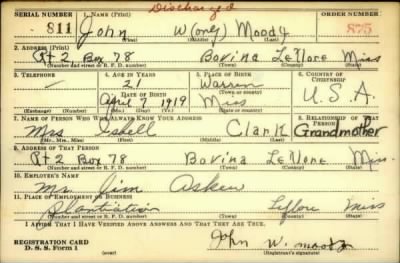 Discharged
SERIAL NUMBER 1. NAME (Print) ORDER NUMBER
811 John W(only) Moody 875
(First) (Middle) (Last)
2. ADDRESS (Print)
Rt 2 Box 78 Bovina Leflore Miss
(Number and street or R. F. D. number) (Town) (County) (State)
3. TELEPHONE 4. AGE IN YEARS 5. PLACE OF BIRTH 6. COUNTRY OF CITIZENSHIP
— 21 Warren
DATE OF BIRTH (Town or county) U.S.A.
April 7 1919 Miss
(Exchange) (Number) (Mo.) (Day) (Yr.) (State or country)
7. NAME OF PERSON WHO WILL ALWAYS KNOW YOUR ADDRESS 8. RELATIONSHIP OF THAT PERSON
Mrs Isbell Clark Grandmother
(Mr., Mrs., Miss) (First) (Middle) (Last)
9. ADDRESS OF THAT PERSON
Rt 2 Box 78 Bovina Leflore Miss.
(Number and street or R. F. D. number) (Town) (County) (State)
10. EMPLOYER'S NAME
Mr. Jim Askew
11. PLACE OF EMPLOYMENT OR BUSINESS
Plantiation Leflore Miss
(Number and street or R. F. D. number) (Town) (County) (State)
I AFFIRM THAT I HAVE VERIFIED ABOVE ANSWERS AND THAT THEY ARE TRUE.
REGISTRATION CARD
D. S. S. Form 1
John W. Moody
(Registrant's signature)